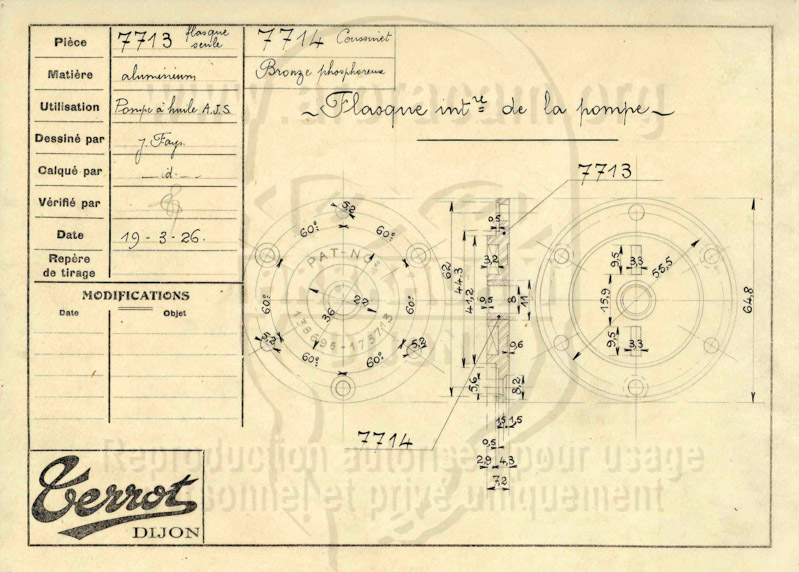 Pièce
7713 flasque seule
7714 Coussinet
Matière
aluminium
Bronze phosphoreux
Utilisation
Pompe à huile A.J.S.
~ Flasque intre de la pompe ~
Dessiné par
J. Fays.
Calqué par
— d. —
Vérifié par
Date
19-3-26.
Repère de tirage
MODIFICATIONS
Date Objet
7713
5,2
60°
60°
PAT-NOS
60°
60°
36
22
138695-173713
5,2
60°
60°
5,2
62
44,3
41,2
0,5
3,2
0,5
8
11
0,6
5,6
8,2
1,5 1,5
0,5
2,9 4,3
7,2
9,5
3,3
55,5
15,9
9,5
3,3
64,8
7714
Terrot
DIJON
Reproduction autorisée pour usage
personnel et privé uniquement